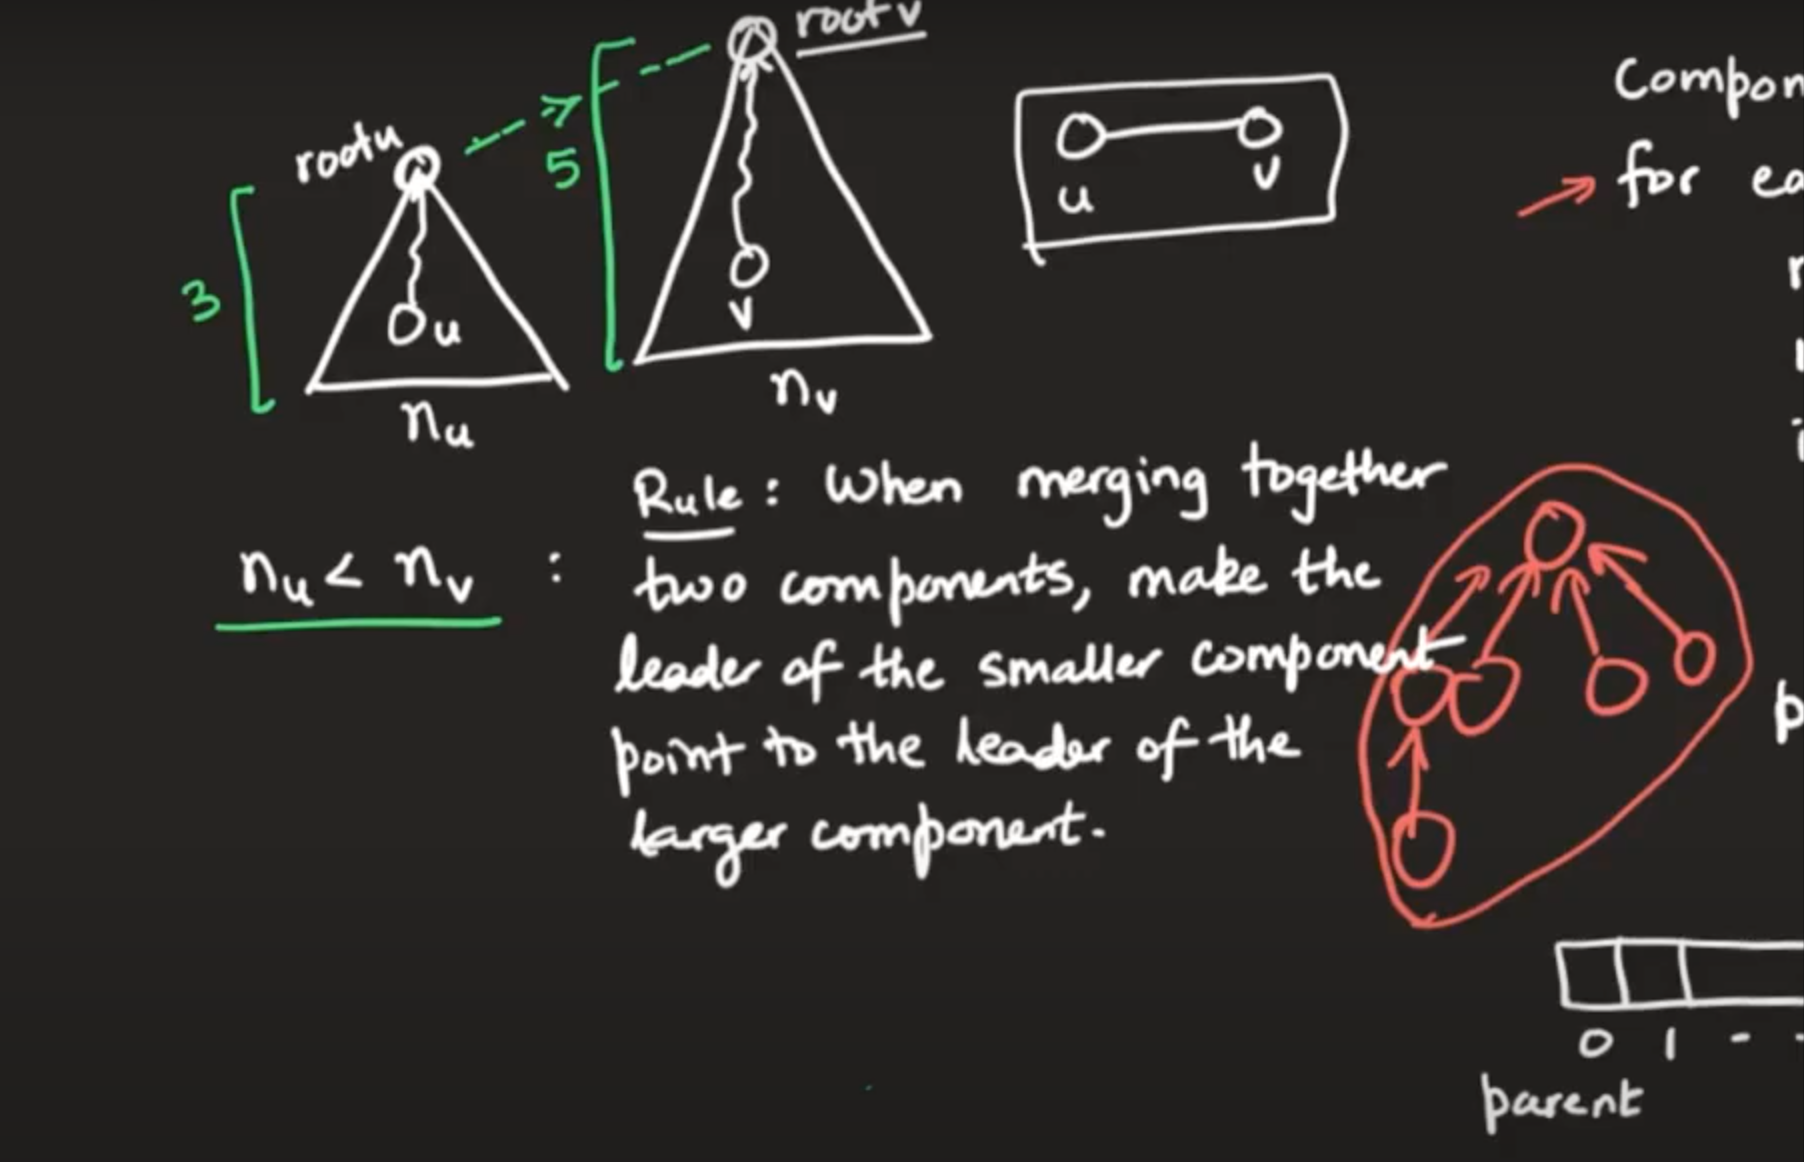 rootv
rootu
5
3
u
v
nu
nv
u
v
Compon
for ea
Rule: When merging together
two components, make the
leader of the smaller component
point to the leader of the
larger component.
nu < nv :
p
0 1 - -
parent